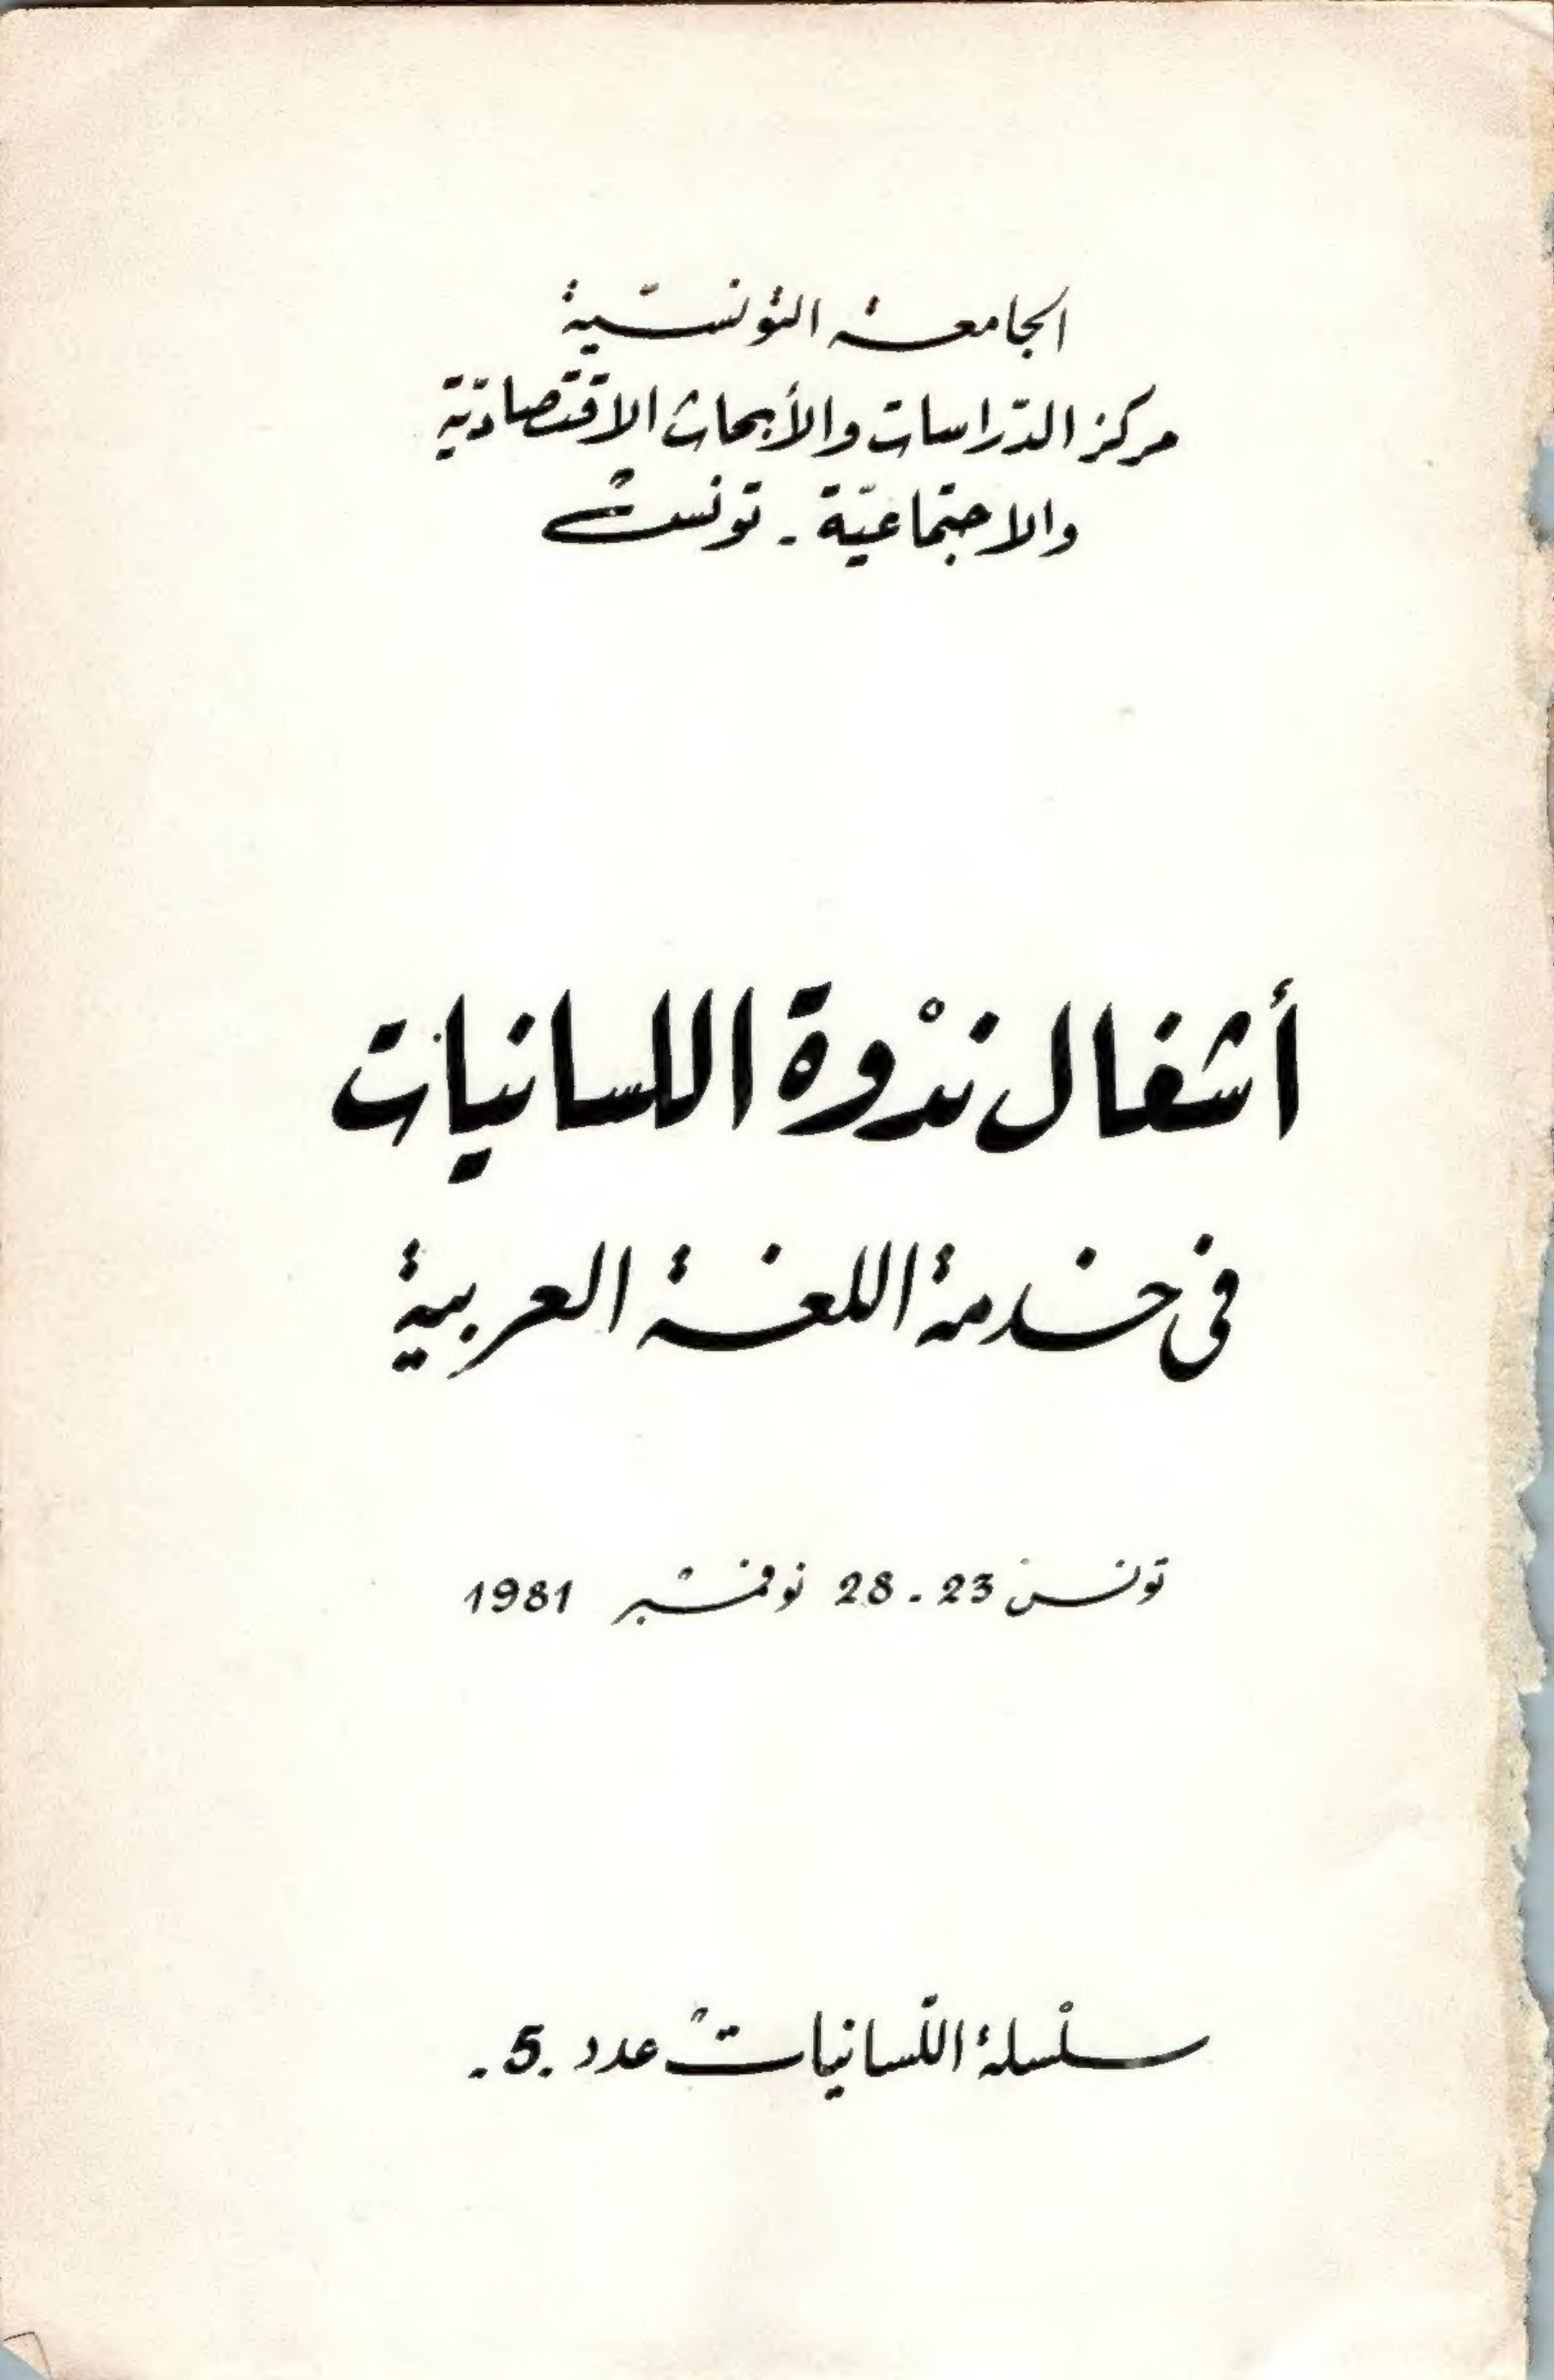 الجامعة التونسيّة
مركز الدّراسات والأبحاث الاقتصاديّة
والاجتماعيّة - تونس
أشغال ندْوة اللسانيات
في خدمة اللغة العربية
تونس 23 - 28 نوفمبر 1981
سلْسلة اللّسانيات عدد .5 -